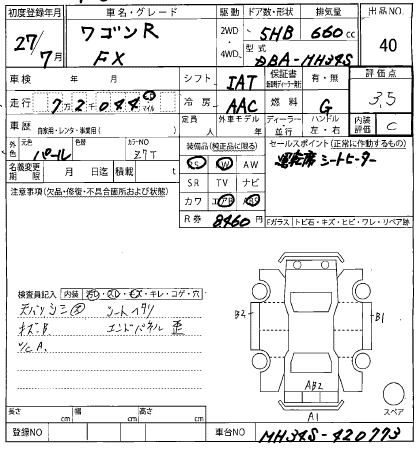 初度登録年月 車名・グレード 駆動 ドア数・形状 排気量 出品NO
27/7月 ワゴンR 2WD 5HB 660cc 40
FX 4WD 型式 DBA-MH34S
車検 年 月 シフト IAT 保証書 有・無 評価点
走行 7万2千044 km マイル 冷房 AAC 燃料 G 3.5
車歴 自家用・レンタ・事業用( ) 定員 人 外車モデル 年 ディーラー 並行 ハンドル 左・右 内装評価 C
外色 元色 パール 色替 カラーNO Z7T 装備品(純正品に限る) セールスポイント(正常に作動するもの)
PS PW AW 運転席シートヒーター
名義変更期限 月 日迄 積載 t SR TV ナビ
注意事項(欠品・修復・不具合箇所および状態) カワ エアB ABS
R券 8460円 Fガラス トビ石・キズ・ヒビ・ワレ・リペア跡
検査員記入 内装 キレ・コゲ・穴
シートヘタリ
キズ・B エンドパネル 歪
U/C A.
B2 B1
AB2
A1
スペア
長さ cm 幅 cm 高さ cm
登録NO 車台NO MH34S-420773